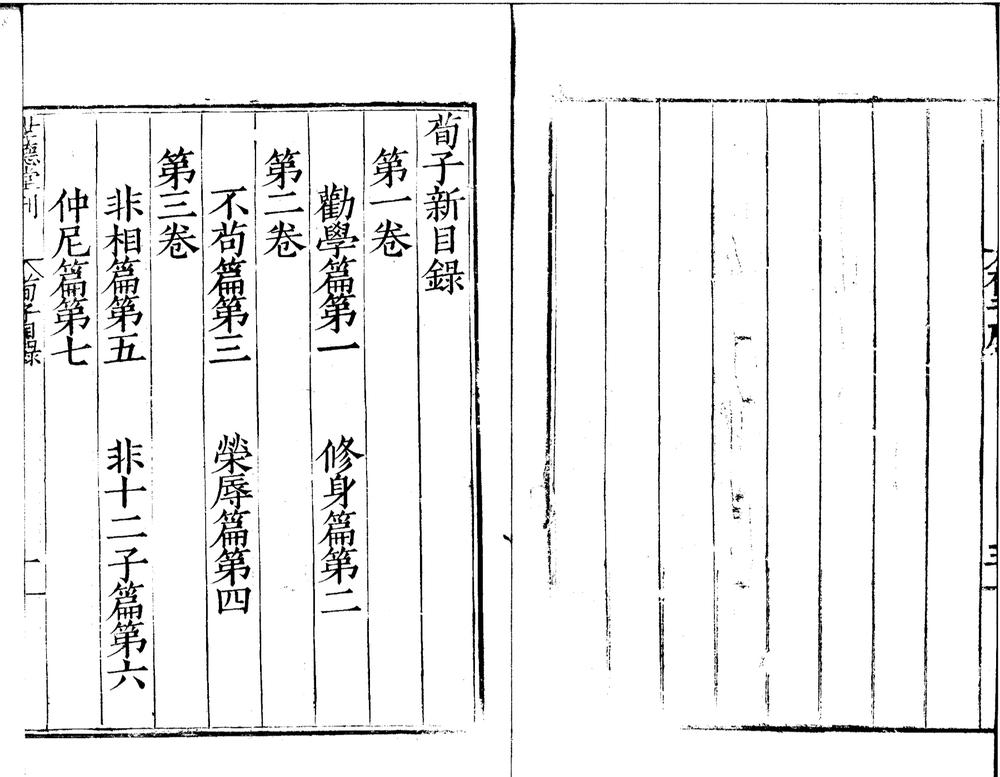 荀子新目錄
第一卷
勸學篇第一　修身篇第二
第二卷
不茍篇第三　榮辱篇第四
第三卷
非相篇第五　非十二子篇第六
仲尼篇第七
世德堂刊　荀子目錄　一